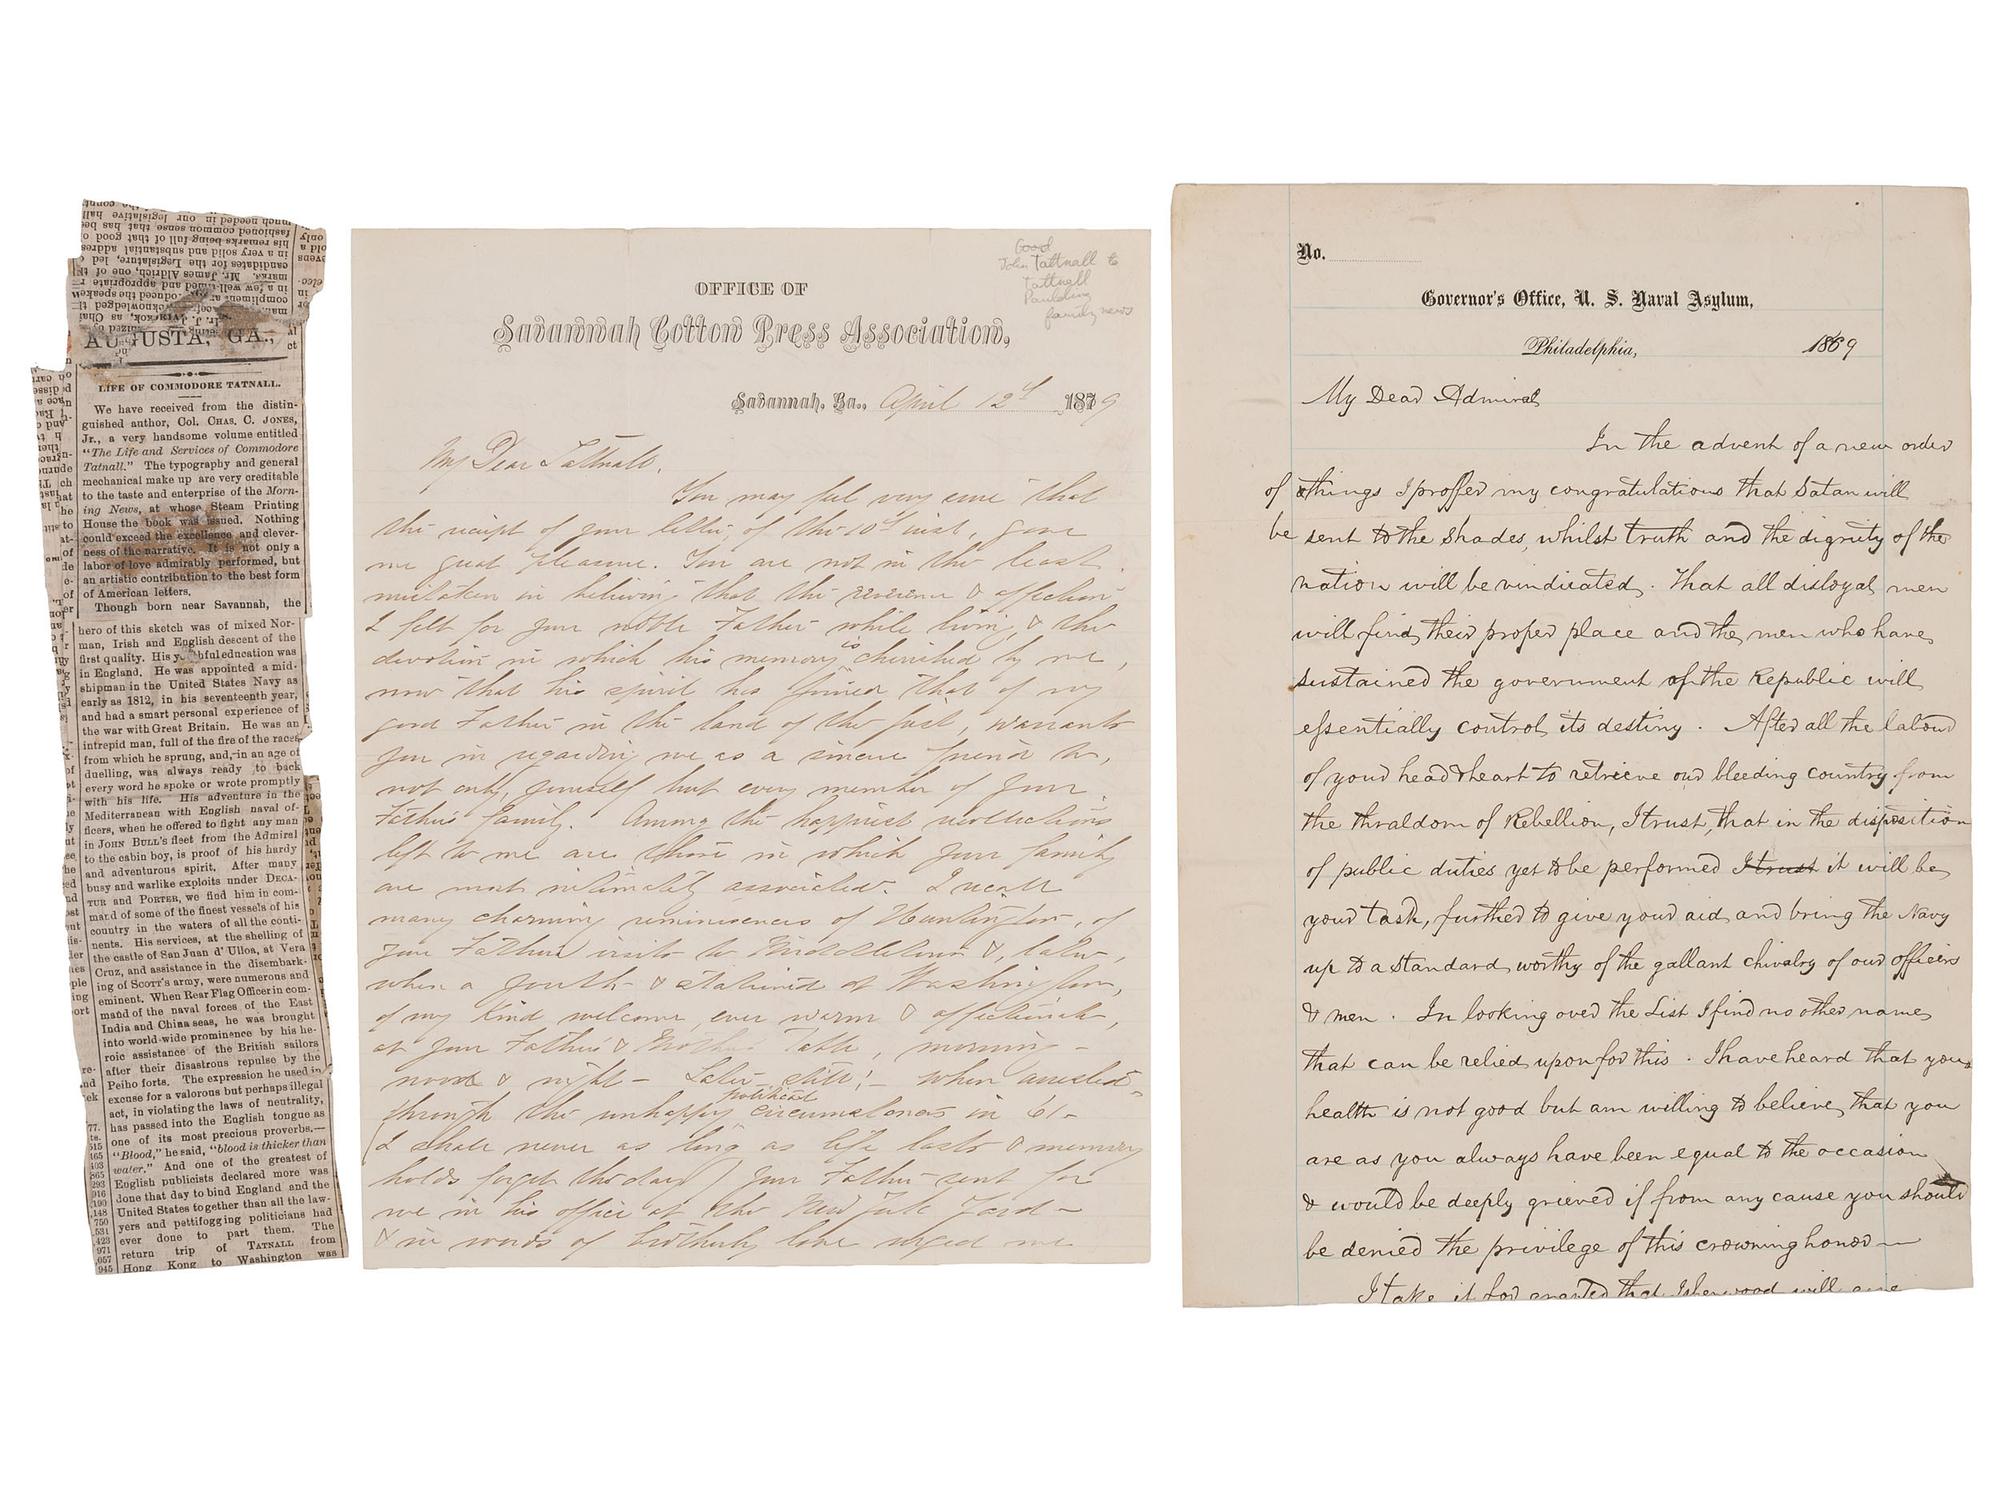 AUGUSTA, GA.,
LIFE OF COMMODORE TATNALL.
We have received from the distin-
guished author, Col. CHAS. C. JONES,
Jr., a very handsome volume entitled
"The Life and Services of Commodore
Tatnall." The typography and general
mechanical make up are very creditable
to the taste and enterprise of the Morn-
ing News, at whose Steam Printing
House the book was issued. Nothing
could exceed the excellence and clever-
ness of the narrative. It is not only a
labor of love admirably performed, but
an artistic contribution to the best form
of American letters.
Though born near Savannah, the
hero of this sketch was of mixed Nor-
man, Irish and English descent of the
first quality. His education was
in England. He was appointed a mid-
shipman in the United States Navy as
early as 1812, in his seventeenth year,
and had a smart personal experience of
the war with Great Britain. He was an
intrepid man, full of the fire of the races
from which he sprung, and, in an age of
duelling, was always ready to back
every word he spoke or wrote promptly
with his life. His adventure in the
Mediterranean with English naval of-
ficers, when he offered to fight any man
in JOHN BULL'S fleet from the Admiral
to the cabin boy, is proof of his hardy
and adventurous spirit. After many
busy and warlike exploits under DECA-
TUR and PORTER, we find him in com-
mand of some of the finest vessels of his
country in the waters of all the conti-
nents. His services, at the shelling of
the castle of San Juan d' Ulloa, at Vera
Cruz, and assistance in the disembark-
ing of SCOTT'S army, were numerous and
eminent. When Rear Flag Officer in com-
mand of the naval forces of the East
India and China seas, he was brought
into world-wide prominence by his he-
roic assistance of the British sailors
after their disastrous repulse by the
Peiho forts. The expression he used in
excuse for a valorous but perhaps illegal
act, in violating the laws of neutrality,
has passed into the English tongue as
one of its most precious proverbs.—
"Blood," he said, "blood is thicker than
water." And one of the greatest of
English publicists declared more was
done that day to bind England and the
United States together than all the law-
yers and pettifogging politicians had
ever done to part them. The
return trip of TATNALL from
Hong Kong to Washington was
Good
John Tattnall to
Tattnall
Paulding
family news
OFFICE OF
Savannah Cotton Press Association,
Savannah, Ga., April 12th 1879
My Dear Tattnall,
You may feel very sure that
the receipt of your letter, of the 10th inst, gave
me great pleasure. You are not in the least
mistaken in believing that the reverence & affection
I felt for your noble Father while living, & the
devotion in which his memory is cherished by me,
now that his spirit has joined that of my
good Father in the land of the just, warrants
you in regarding me as a sincere friend to,
not only, yourself but every member of your
Father's family. Among the happiest recollections
left to me are those in which your family
are most intimately associated. I recall
many charming reminiscences of Huntington, of
your Father's visits to Middletown &, later,
when a youth & stationed at Washington,
of my kind welcome, ever warm & affectionate,
at your Father's & Mother's Table, morning -
noon & night - Later still! - when arrested
through the unhappy political circumstances in '61 -
(I shall never as long as life lasts & memory
holds forget the day) your Father sent for
me in his office at the New York Yard -
& in words of brotherly love urged me
No.
Governor's Office, U. S. Naval Asylum,
Philadelphia, 1869
My Dear Admiral
In the advent of a new order
of things I proffer my congratulations that Satan will
be sent to the shades, whilst truth and the dignity of the
nation will be vindicated. That all disloyal men
will find their proper place and the men who have
sustained the government of the Republic will
essentially control its destiny. After all the labour
of your head & heart to retrieve our bleeding country from
the thraldom of Rebellion, I trust, that in the disposition
of public duties yet to be performed I trust it will be
your task, further to give your aid and bring the Navy
up to a standard worthy of the gallant chivalry of our officers
& men. In looking over the List I find no other name
that can be relied upon for this. I have heard that your
health is not good but am willing to believe that you
are as you always have been equal to the occasion
& would be deeply grieved if from any cause you should
be denied the privilege of this crowning honor—
I take it for granted that Isherwood will